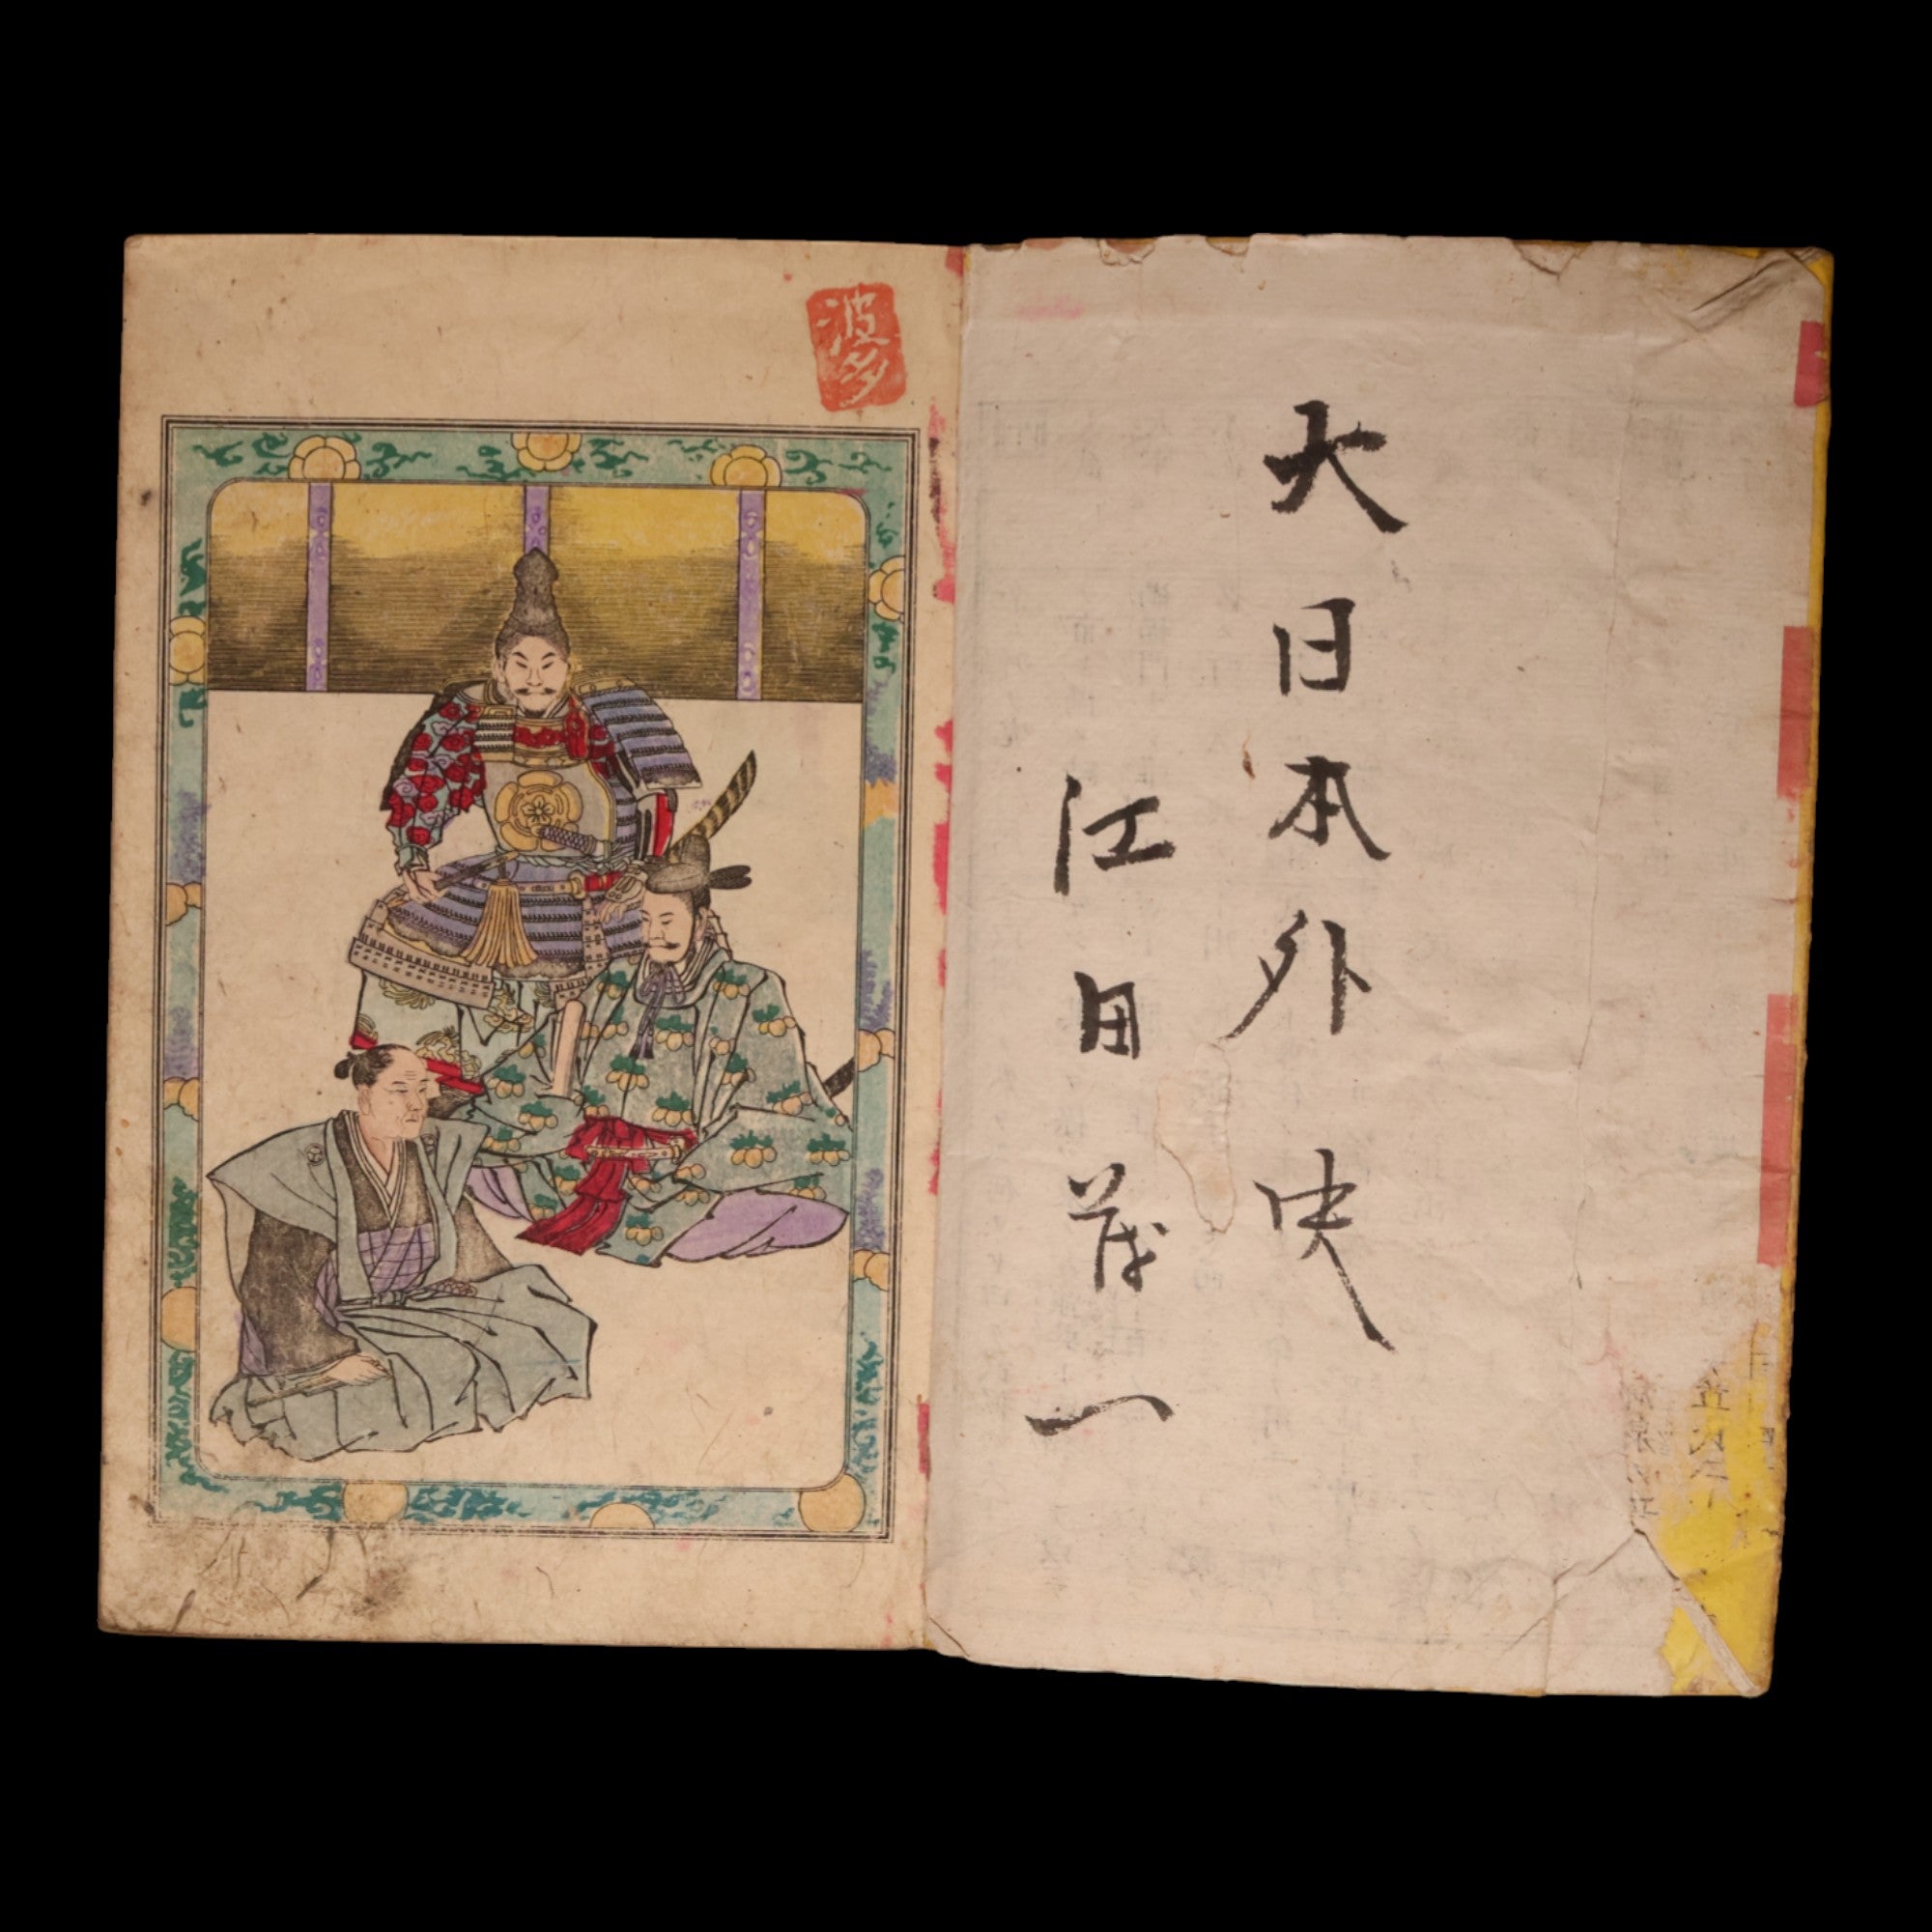 大日本外史
江田茂一
波多